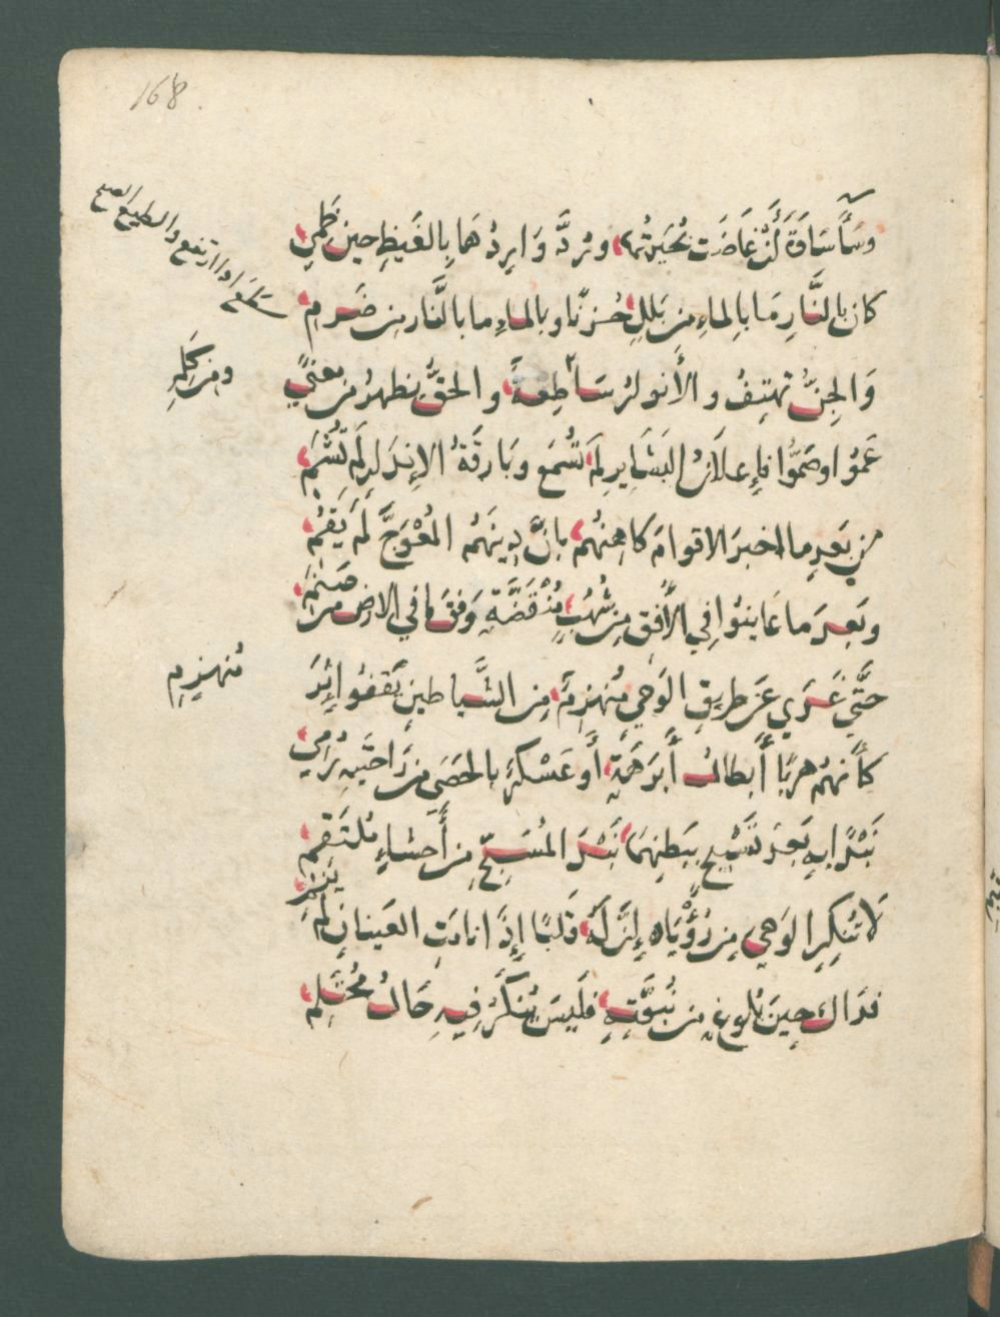 168.
وسَأَسَاوَةَ أَنْ غَاضَت بُحَيْرَتُهَا وَرُدَّ وَارِدُهَا بِالغَيظِ حين ظَمِي
كان بالنَّارِ مَا بِالماءِ من بَلَلٍ حُزنًا وبالماءِ ما بالنَّار من ضَرَمِ
وَالجِنُّ تهتِفُ والأَنوارُ سَاطِعَةٌ والحقُّ يظهرُ من معنىً
ومن كَلِمِ
سَطَعَ اذا ارتفع والسطيع الصبح
عَمُوا وصَمُّوا فإِعلَانُ البَشَايِرِ لَم تُسْمَع وبَارقَةُ الإنذَارِ لَم تُشَمِ
من بَعدِ ما اخبرَ الاقوامَ كاهِنُهُم بانَّ دِينَهُمُ المُعْوَجَّ لَم يَقُمِ
وبَعدَ ما عَاينوا فِي الأُفقِ من شُهُبٍ مُنْقَضَّةٍ وَفقَ مَا في الارض من صَنَمِ
حتَّي غَدَي عَن طريقِ الوَحيِ مُنهزِمٌ من الشَّياطينِ يَقفُو إِثرَ
مُنهزِمِ
كأَنهُم هرَبًا أَبطالُ أَبرَهَةٍ أَو عَسْكَرٌ بالحَصَي من رَاحَتَيهِ رُمِي
نَبْذًا بِهِ بَعدَ تَسْبِيحٍ بِبَطنِهِمَا نَبْذَ المُسَبِّحِ من أَحشاءِ مُلتَقِمِ
لَا تُنكِرِ الوَحيَ من رُؤْيَاهُ إِنَّ لَهُ قَلبًا إِذَا نامَتِ العَينانِ لَم يَنَمِ
فذَاكَ حِينَ بُلوغٍ من نُبُوَّتِهِ فلَيسَ يُنكَرُ فِيهِ حَالُ مُحتَلِمِ